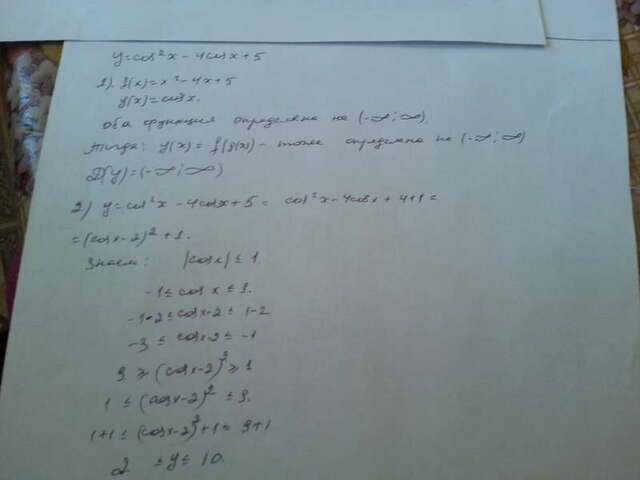 y=cos²x-4cosx+5
1). f(x)=x²-4x+5
g(x)=cosx.
оба функция определена на (-∞;∞).
Тогда: y(x)=f(g(x)) - тоже определена на (-∞;∞)
D(y)=(-∞;∞)
2) y=cos²x-4cosx+5= cos²x-4cosx+4+1=
=(cosx-2)²+1.
Знаем: |cosx|≤1.
-1≤cosx≤1.
-1-2≤cosx-2≤1-2
-3≤cosx-2≤-1
9≥(cosx-2)²≥1
1≤(cosx-2)²≤9.
1+1≤(cosx-2)²+1≤9+1
2≤y≤10.